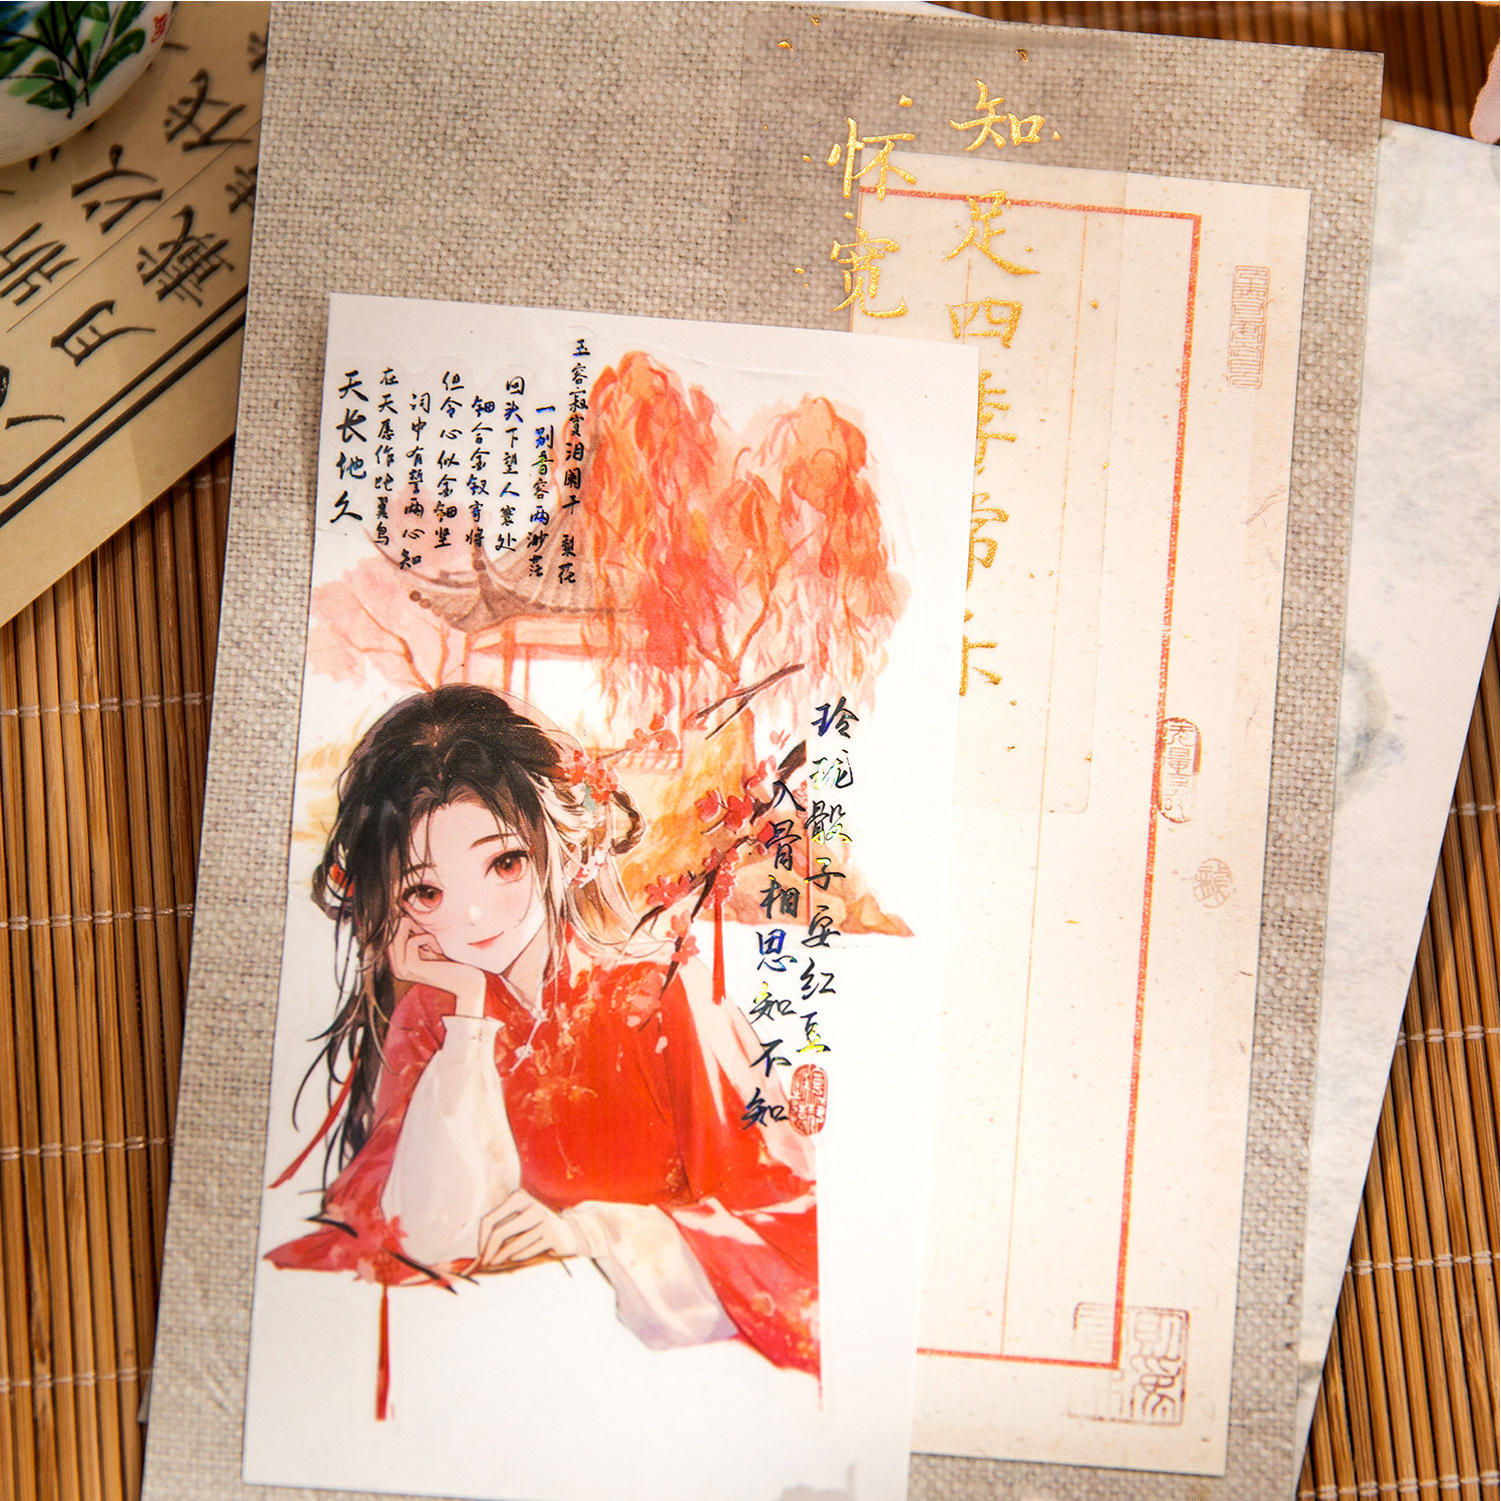 知足四季常乐
怀宽
玉容寂寞泪阑干 梨花
一别音容两渺茫
回头下望人寰处
钿合金钗寄将
但令心似金钿坚
词中有誓两心知
在天愿作比翼鸟
天长地久
玲珑骰子安红豆
入骨相思知不知
月